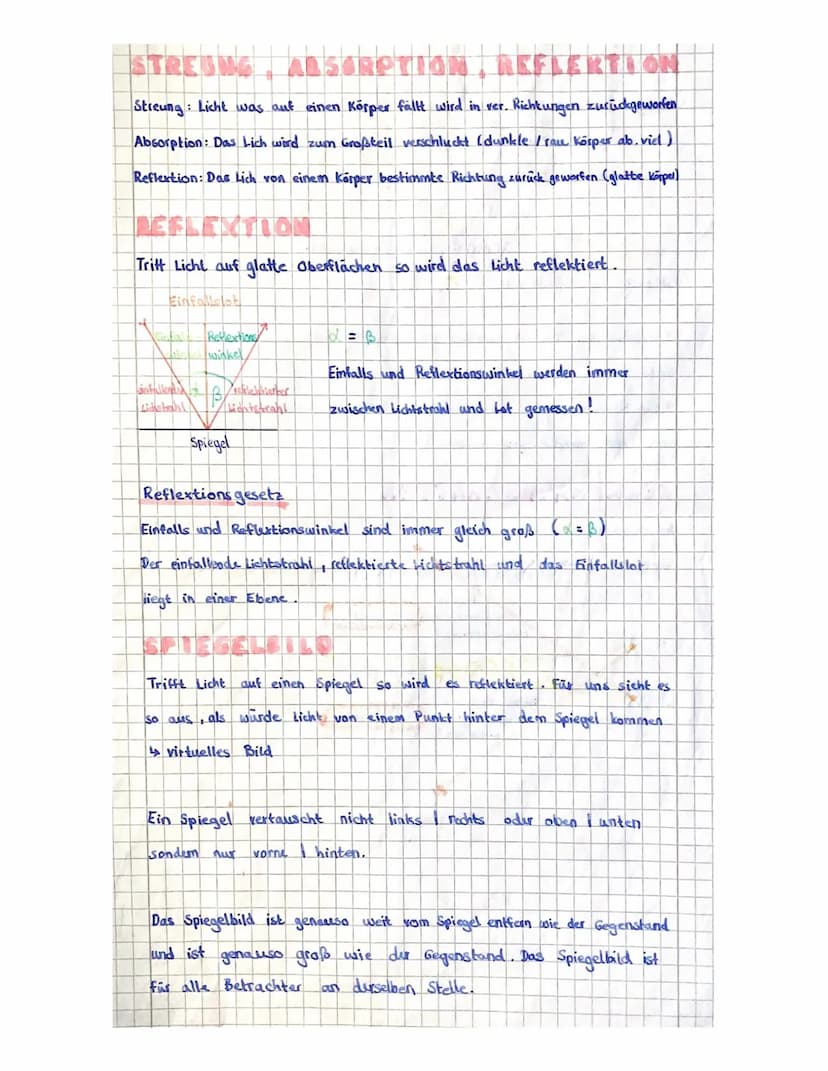 STREUNG, ABSORPTION, REFLEKTION
Streung: Licht was auf einen Körper fällt wird in ver. Richtungen zurückgeworfen
Absorption: Das Lich wird zum Großteil verschluckt (dunkle / rau Körper ab. viel)
Reflextion: Das Lich von einem Körper bestimmte Richtung zurück geworfen (glatte Körper)
REFLEXTION
Tritt Licht auf glatte Oberflächen so wird das Licht reflektiert.
Einfallslot
Einfalls Reflextions
winkel winkel
α = β
Einfalls und Reflextionswinkel werden immer
einfallender α β reflektierter
Lichtstrahl Lichtstrahl
zwischen Lichtstrahl und Lot gemessen!
Spiegel
Reflextionsgesetz
Einfalls und Reflextionswinkel sind immer gleich groß (α = β)
Der einfallende Lichtstrahl, reflektierte Lichtstrahl und das Einfallslot
liegt in einer Ebene.
SPIEGELBILD
Trifft Licht auf einen Spiegel so wird es reflektiert. Für uns sieht es
so aus, als würde Licht von einem Punkt hinter dem Spiegel kommen
↳ virtuelles Bild
Ein Spiegel vertauscht nicht links / rechts oder oben / unten
sondern nur vorne / hinten.
Das Spiegelbild ist genauso weit vom Spiegel entfern wie der Gegenstand
und ist genauso groß wie der Gegenstand. Das Spiegelbild ist
für alle Betrachter an derselben Stelle.